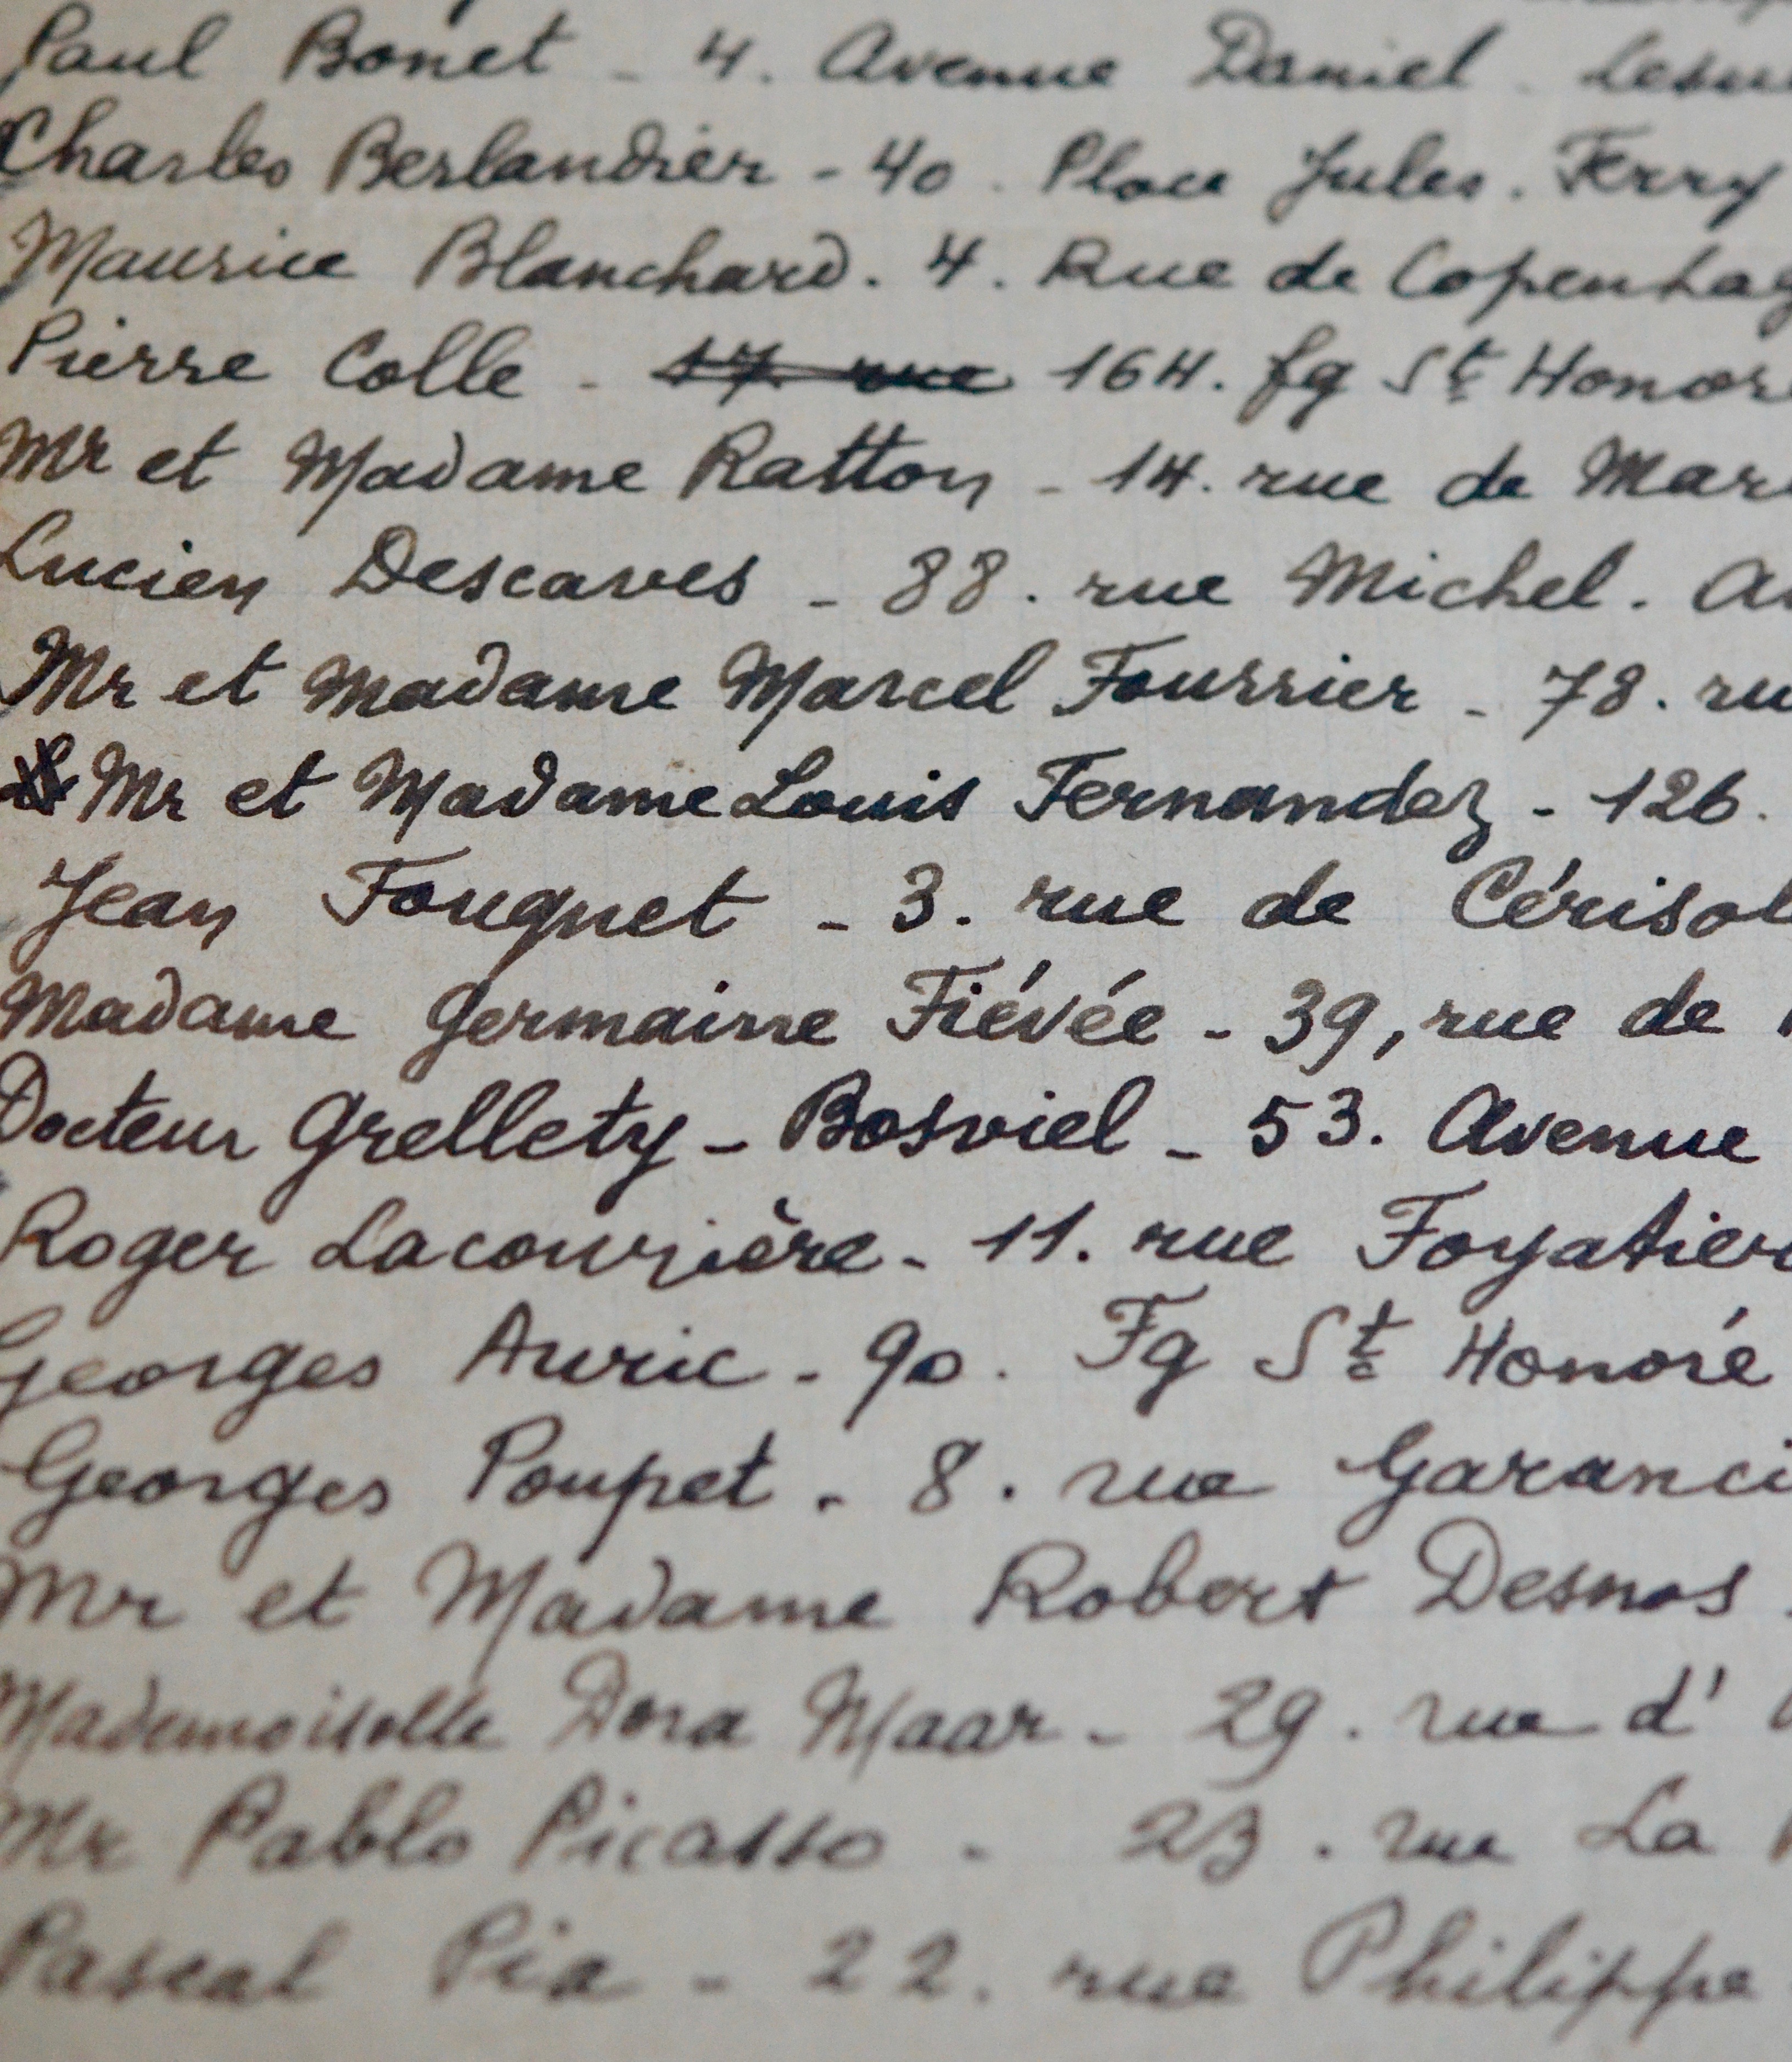 Paul Bonet - 4. Avenue Daniel - Lesu
Charles Berlandier - 40. Place Jules. Ferry
Maurice Blanchard. 4. Rue de Copenhag
Pierre Colle - 17. rue 164. fg St Honor
Mr et Madame Ratton - 14. rue de Mar
Lucien Descaves - 88. rue Michel. A
Mr et Madame Marcel Fourrier - 78. ru
Mr et Madame Louis Fernandez - 126.
Jean Fouquet - 3. rue de Cérisol
Madame Germaine Fiévée - 39, rue de
Docteur Grellety - Bosviel - 53. Avenue
Roger Lacourière - 11. rue Foyatier
Georges Auric - 90. Fg St Honoré
Georges Poupet - 8. rue Garanci
Mr et Madame Robert Desnos
Mademoiselle Dora Maar - 29. rue d'
Mr Pablo Picasso - 23. rue La
Pascal Pia - 22. rue Philippe